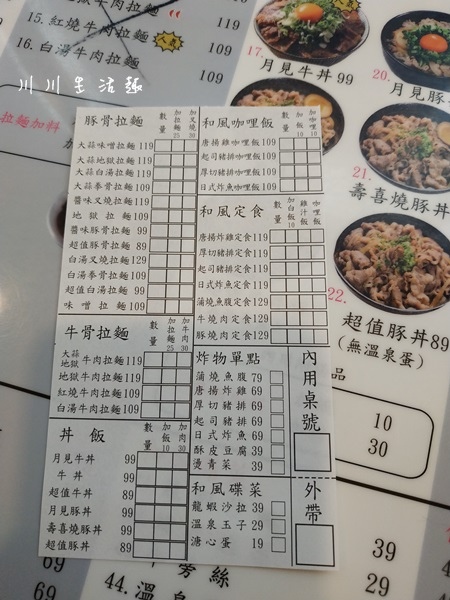 15.紅燒牛肉拉麵
16.白湯牛肉拉麵
109
109
川川生活趣
拉麵加料
豚骨拉麵 數量 加拉麵25 加叉燒30
大蒜味噌拉麵119
大蒜地獄拉麵119
大蒜白湯拉麵119
大蒜麥骨拉麵119
醬味叉燒拉麵119
地獄拉麵109
醬味豚骨拉麵99
超值豚骨拉麵89
白湯叉燒拉麵119
白湯麥骨拉麵109
超值白湯拉麵99
味噌拉麵109
牛骨拉麵 數量 加拉麵25 加牛肉30
大蒜地獄牛肉拉麵119
地獄牛肉拉麵109
紅燒牛肉拉麵109
白湯牛肉拉麵109
丼飯 數量 加飯10 加肉30
月見牛丼 99
牛丼 99
超值牛丼 89
月見豚丼 99
壽喜燒豚丼 99
超值豚丼 89
和風咖哩飯 數量 加飯10 加咖哩10
唐揚雞咖哩飯109
起司豬排咖哩飯109
厚切豬排咖哩飯109
日式炸魚咖哩飯109
和風定食 數量 加白飯10 雞汁飯 咖哩飯
唐揚炸雞定食119
厚切豬排定食119
起司豬排定食119
日式炸魚定食119
蒲燒魚腹定食129
牛燒肉定食129
豚燒肉定食129
炸物單點
蒲燒魚腹 79
唐揚炸雞 69
厚切豬排 69
起司豬排 69
日式炸魚 69
酥皮豆腐 39
燙青菜 39
和風碟菜
龍蝦沙拉 39
溫泉玉子 29
溏心蛋 19
內用桌號
外帶
17.月見牛丼99
20.
月見豚
21.
壽喜燒豚丼
22.
超值豚丼89
(無溫泉蛋)
品
10
30
39
29
69
69
44.溫